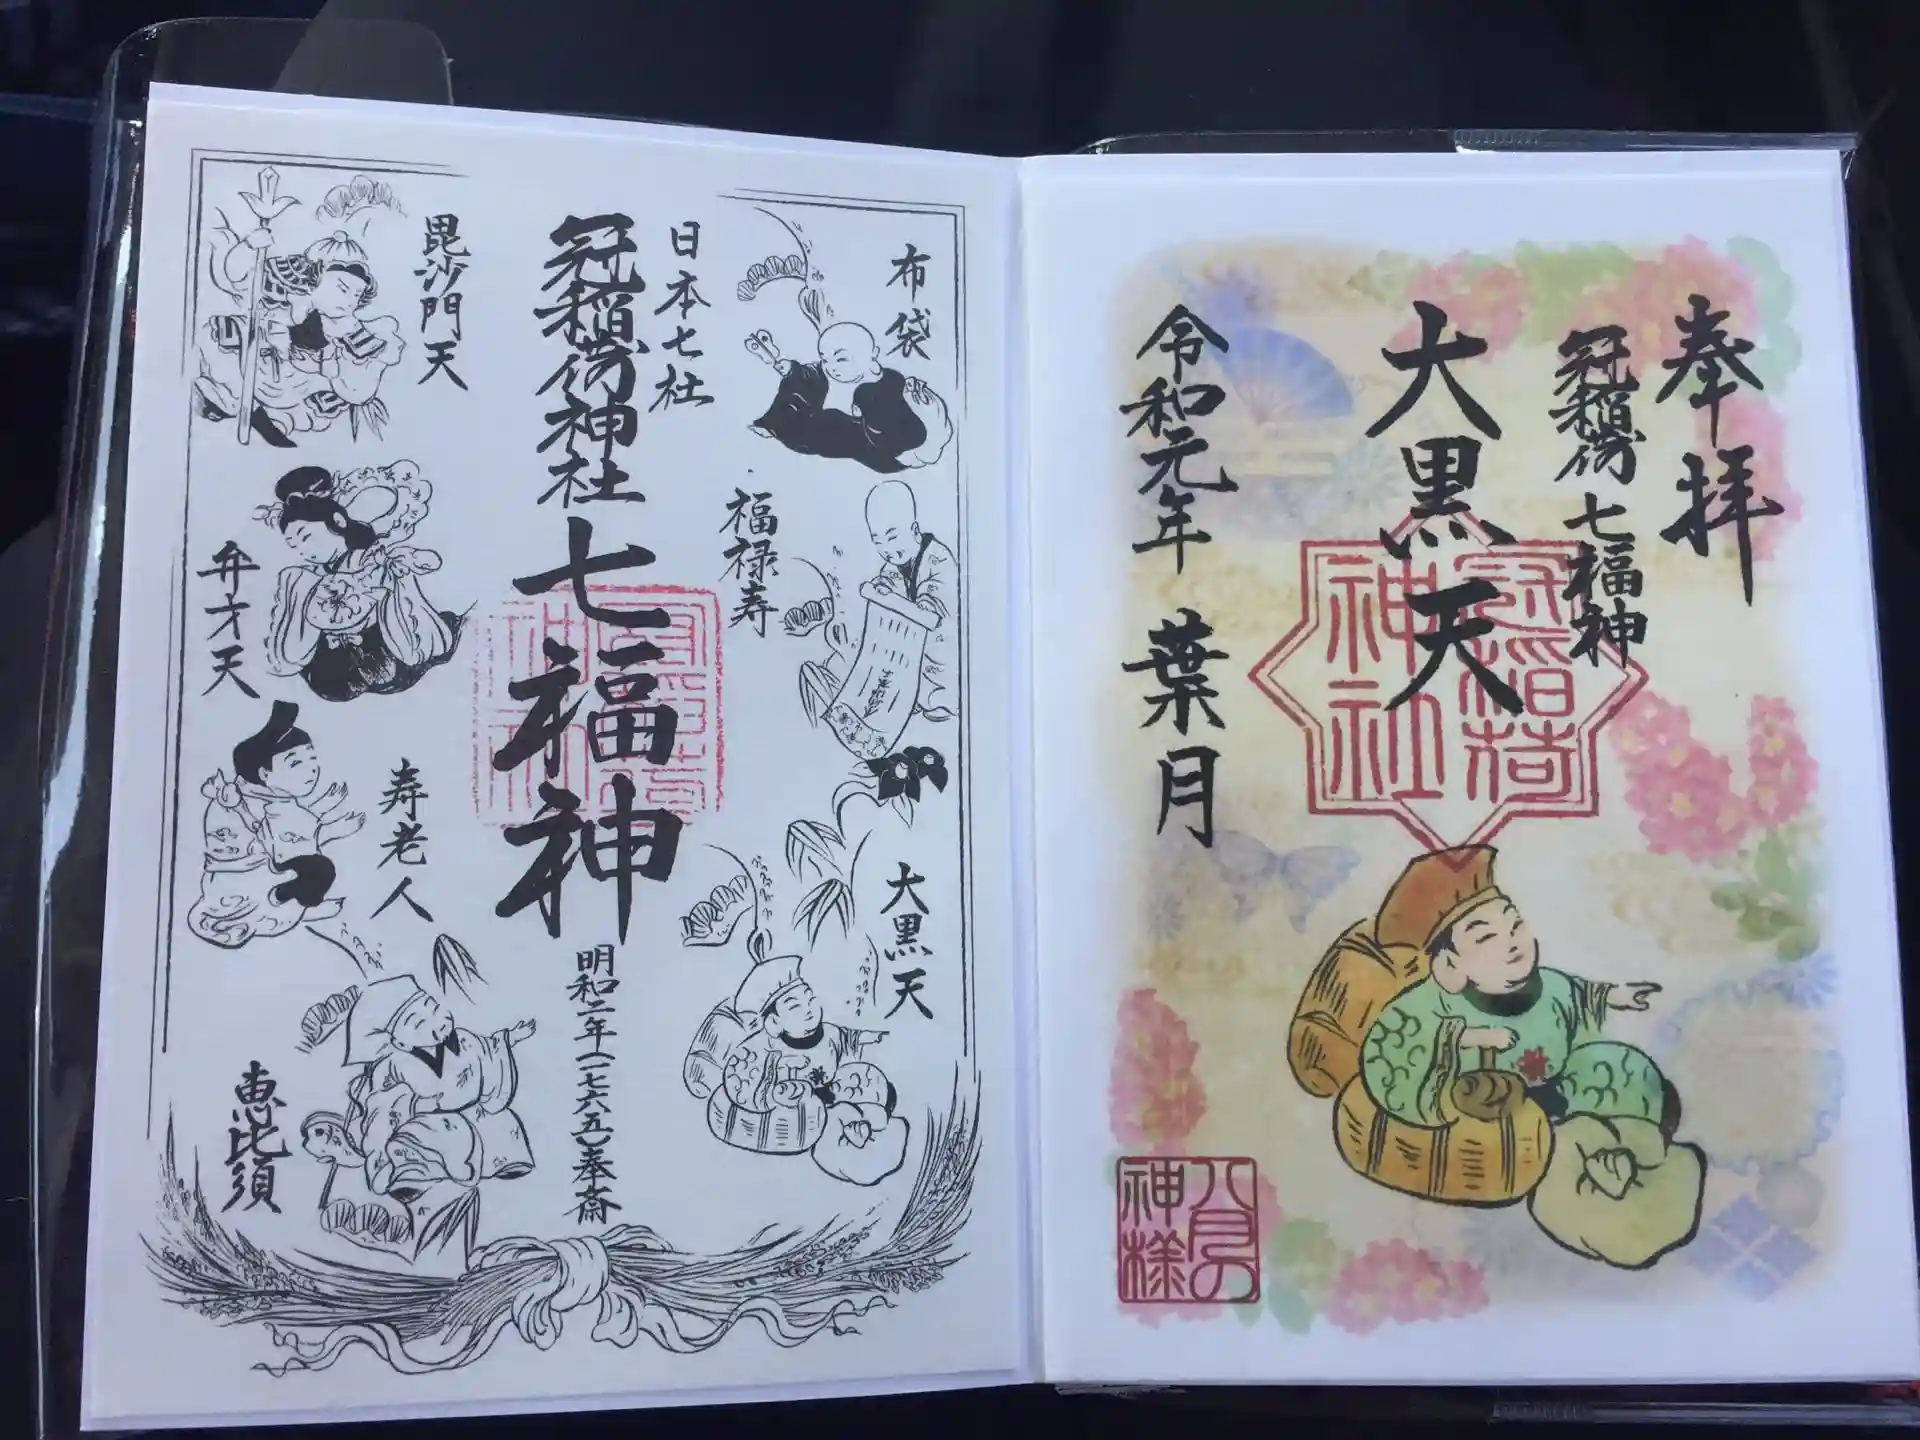 布袋
福禄寿
大黒天
日本七社
冠稲荷神社七福神
明和二年(一七六五)奉斎
毘沙門天
弁才天
寿老人
恵比須
冠稲荷
神社
奉拝
冠稲荷七福神
大黒天
令和元年 葉月
冠稲荷
神社
八月の
神様